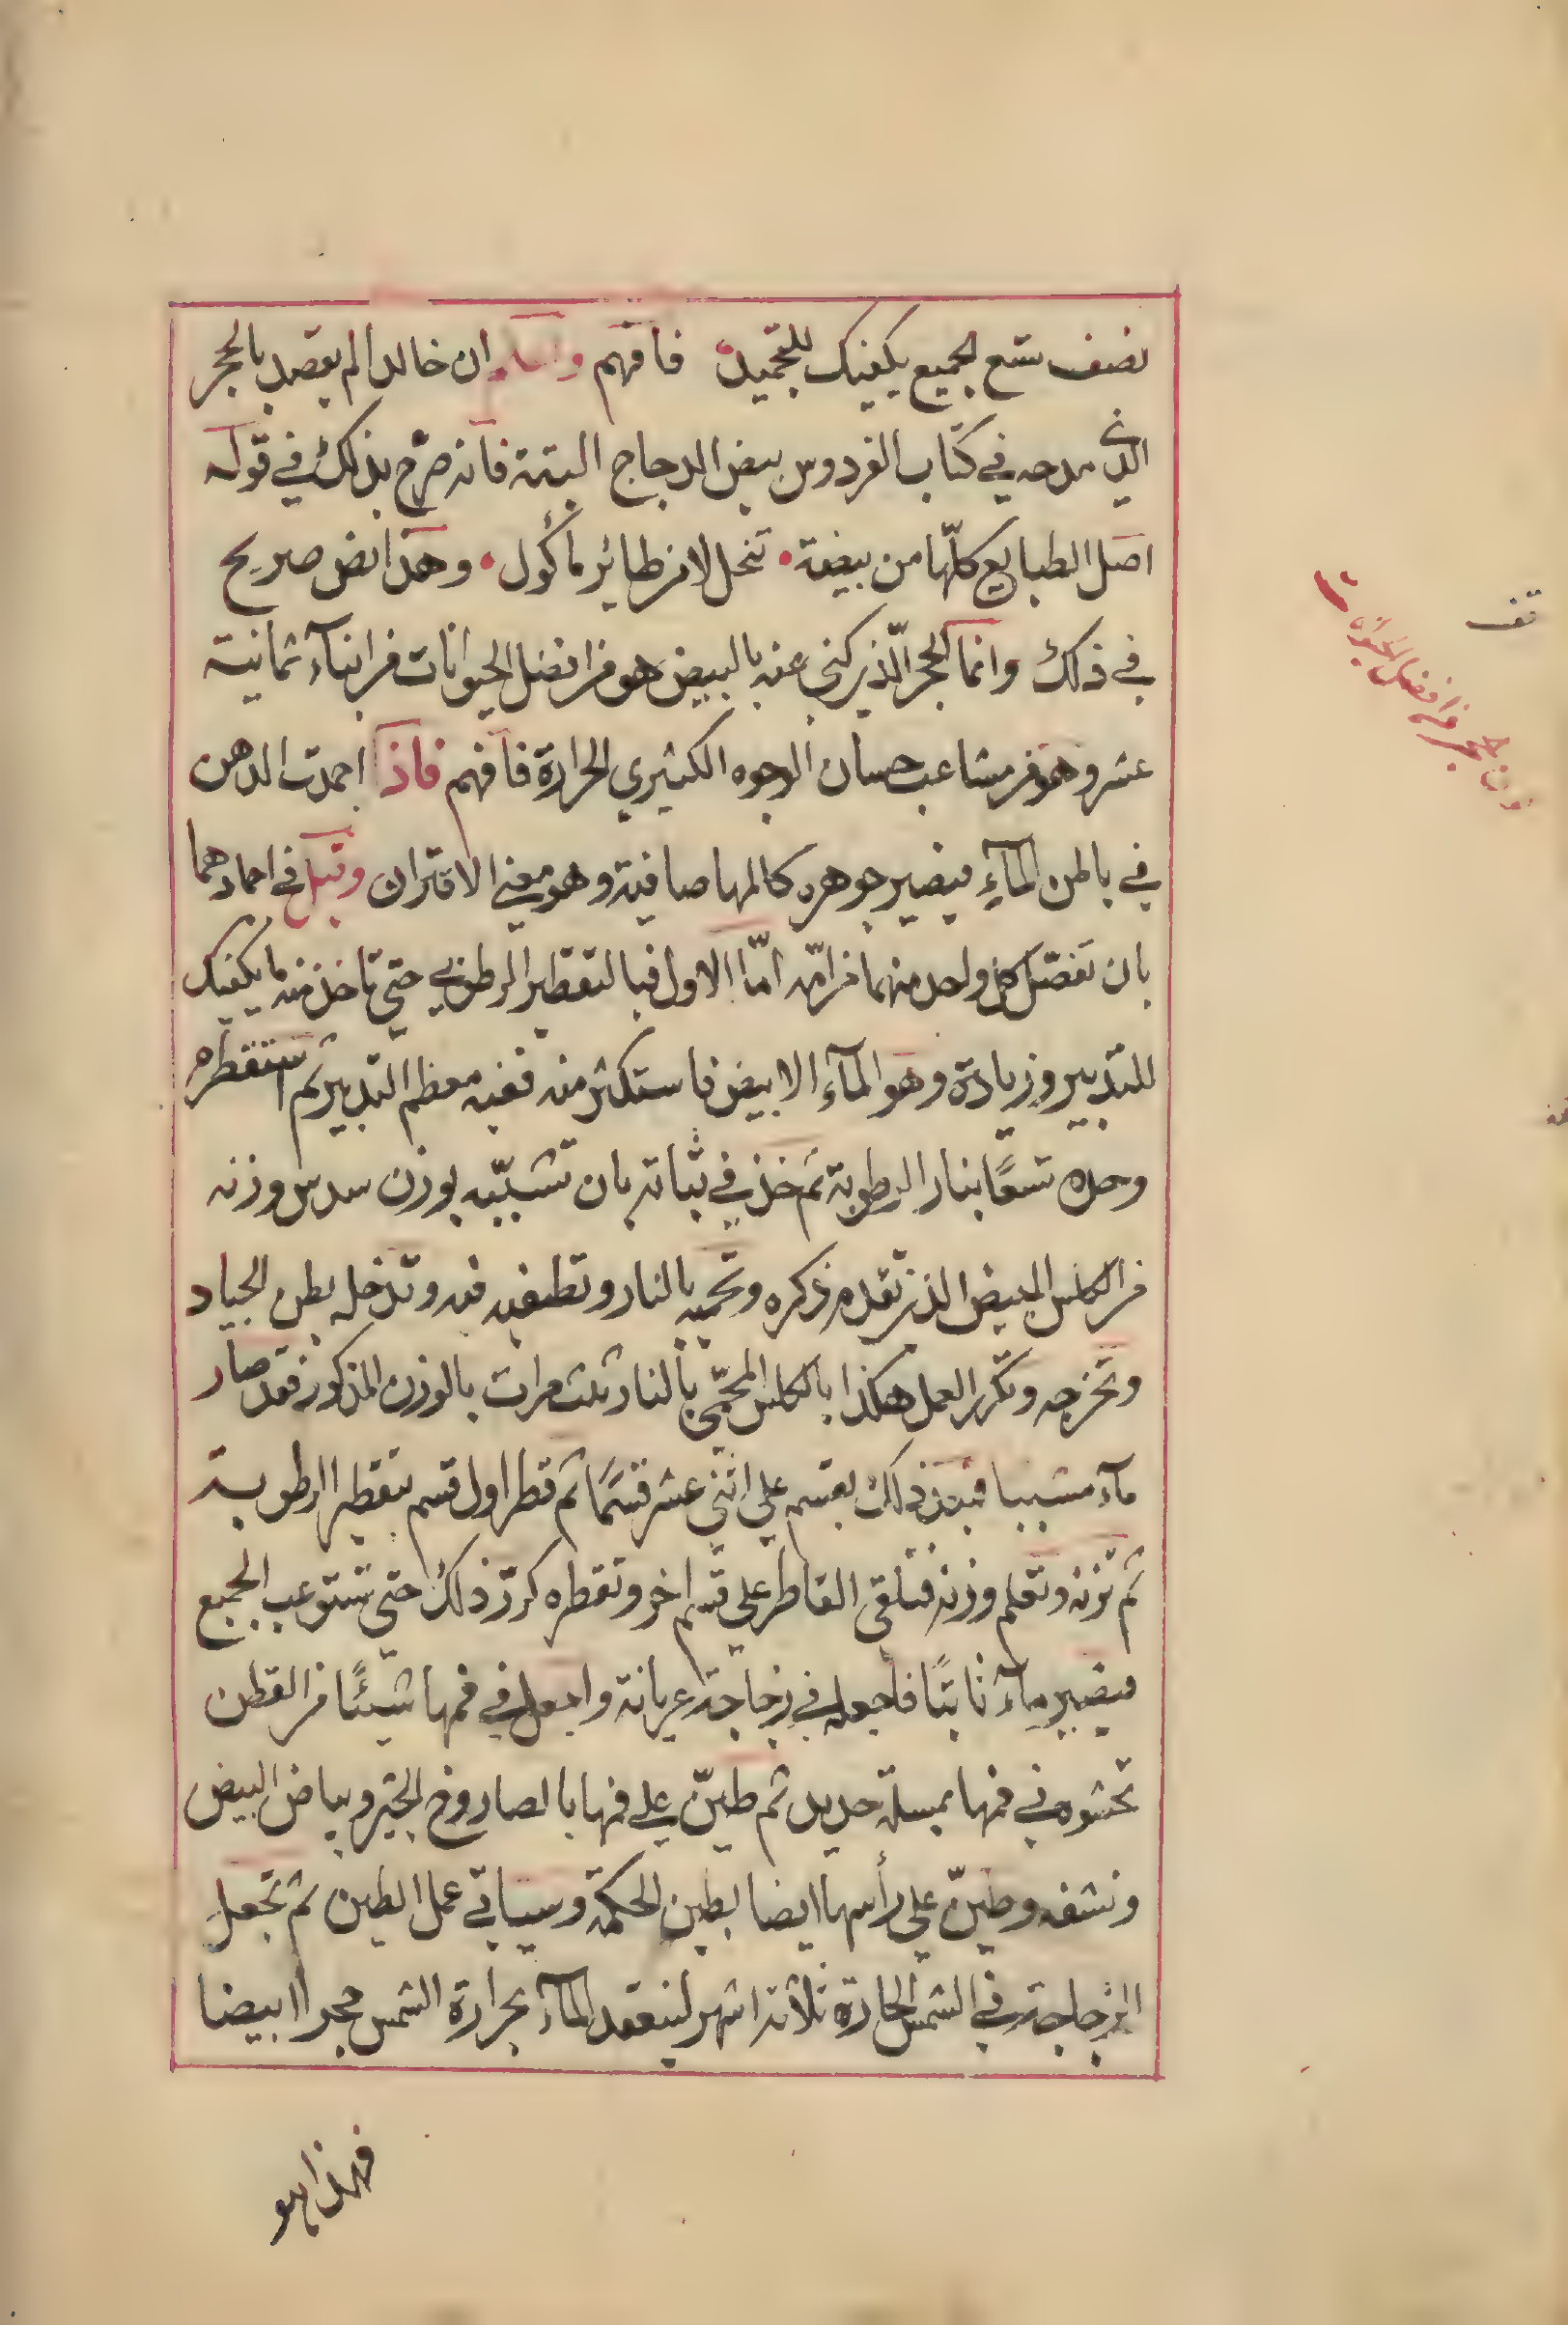 نصف تسع الجميع يكفيك للتجميد فافهم واعلم ان خالدا لم يقصد بالحجر
الذي مدحه في كتاب الفردوس بيض الدجاج البتة فانه صرح بذلك في قوله
اصل الطبايع كلّها من بيضة • تنحل لا من طائر مأكول • وهذا نص صريح
في ذلك وانما الحجر الّذي كنى عنه بالبيض هو من افضل الحيوانات من ابناء ثمانية
عشر وهو من مشاعب حسان الوجوه الكثيري الحرارة فافهم فاذا اجمدت الدهن
في باطن المآء فيصير جوهره كالمها صافية وهو معنى الاقتران وقيل في اجمادهما
بان تفصّل كل واحد منهما من امّه امّا الاول فبالتقطير الرطوبي حتى تاخذ منه ما يكفيك
للتدبير وزيادة وهو المآء الابيض فاستكثر منه ففيه معظم التدبير ثم تستقطره
وحده تسعًا بنار الرطوبة ثم خذ في ثباته بان تشبّبه بوزن سدس وزنه
من الكلس المبيض الذي تقدم ذكره وتحميه بالنار وتطفيه فيه وتدخله بطن الجياد
وتخرجه وتكرر العمل هكذا بالكلس المحمّى بالنار ثلث مرات بالوزن المذكور فقد صار
مآء مشببا فبعد ذلك يقسم على اثنى عشر قسمًا ثم قطر اول قسم بتقطير الرطوبة
ثم تزنه وتعلم وزنه فتلقى القاطر على قسم اخر وتقطره كرّر ذلك حتى تستوعب الجميع
فيصير مآء ثابتًا فاجعله في زجاجة عريانة واجعل في فمها شيئًا من القطن
تحشوه في فمها بمسلة حديد ثم طيّن على فمها بالصاروج الجير وبياض البيض
ونشفه وطيّن على رأسها ايضا بطين الحكمة وسياتي عمل الطين ثم تجعل
الزجاجة في الشمس الحارة ثلاثة اشهر لينعقد المآء بحرارة الشمس حجرا ابيضا
فهذا هو
قف
الحجر من افضل الحيوانات